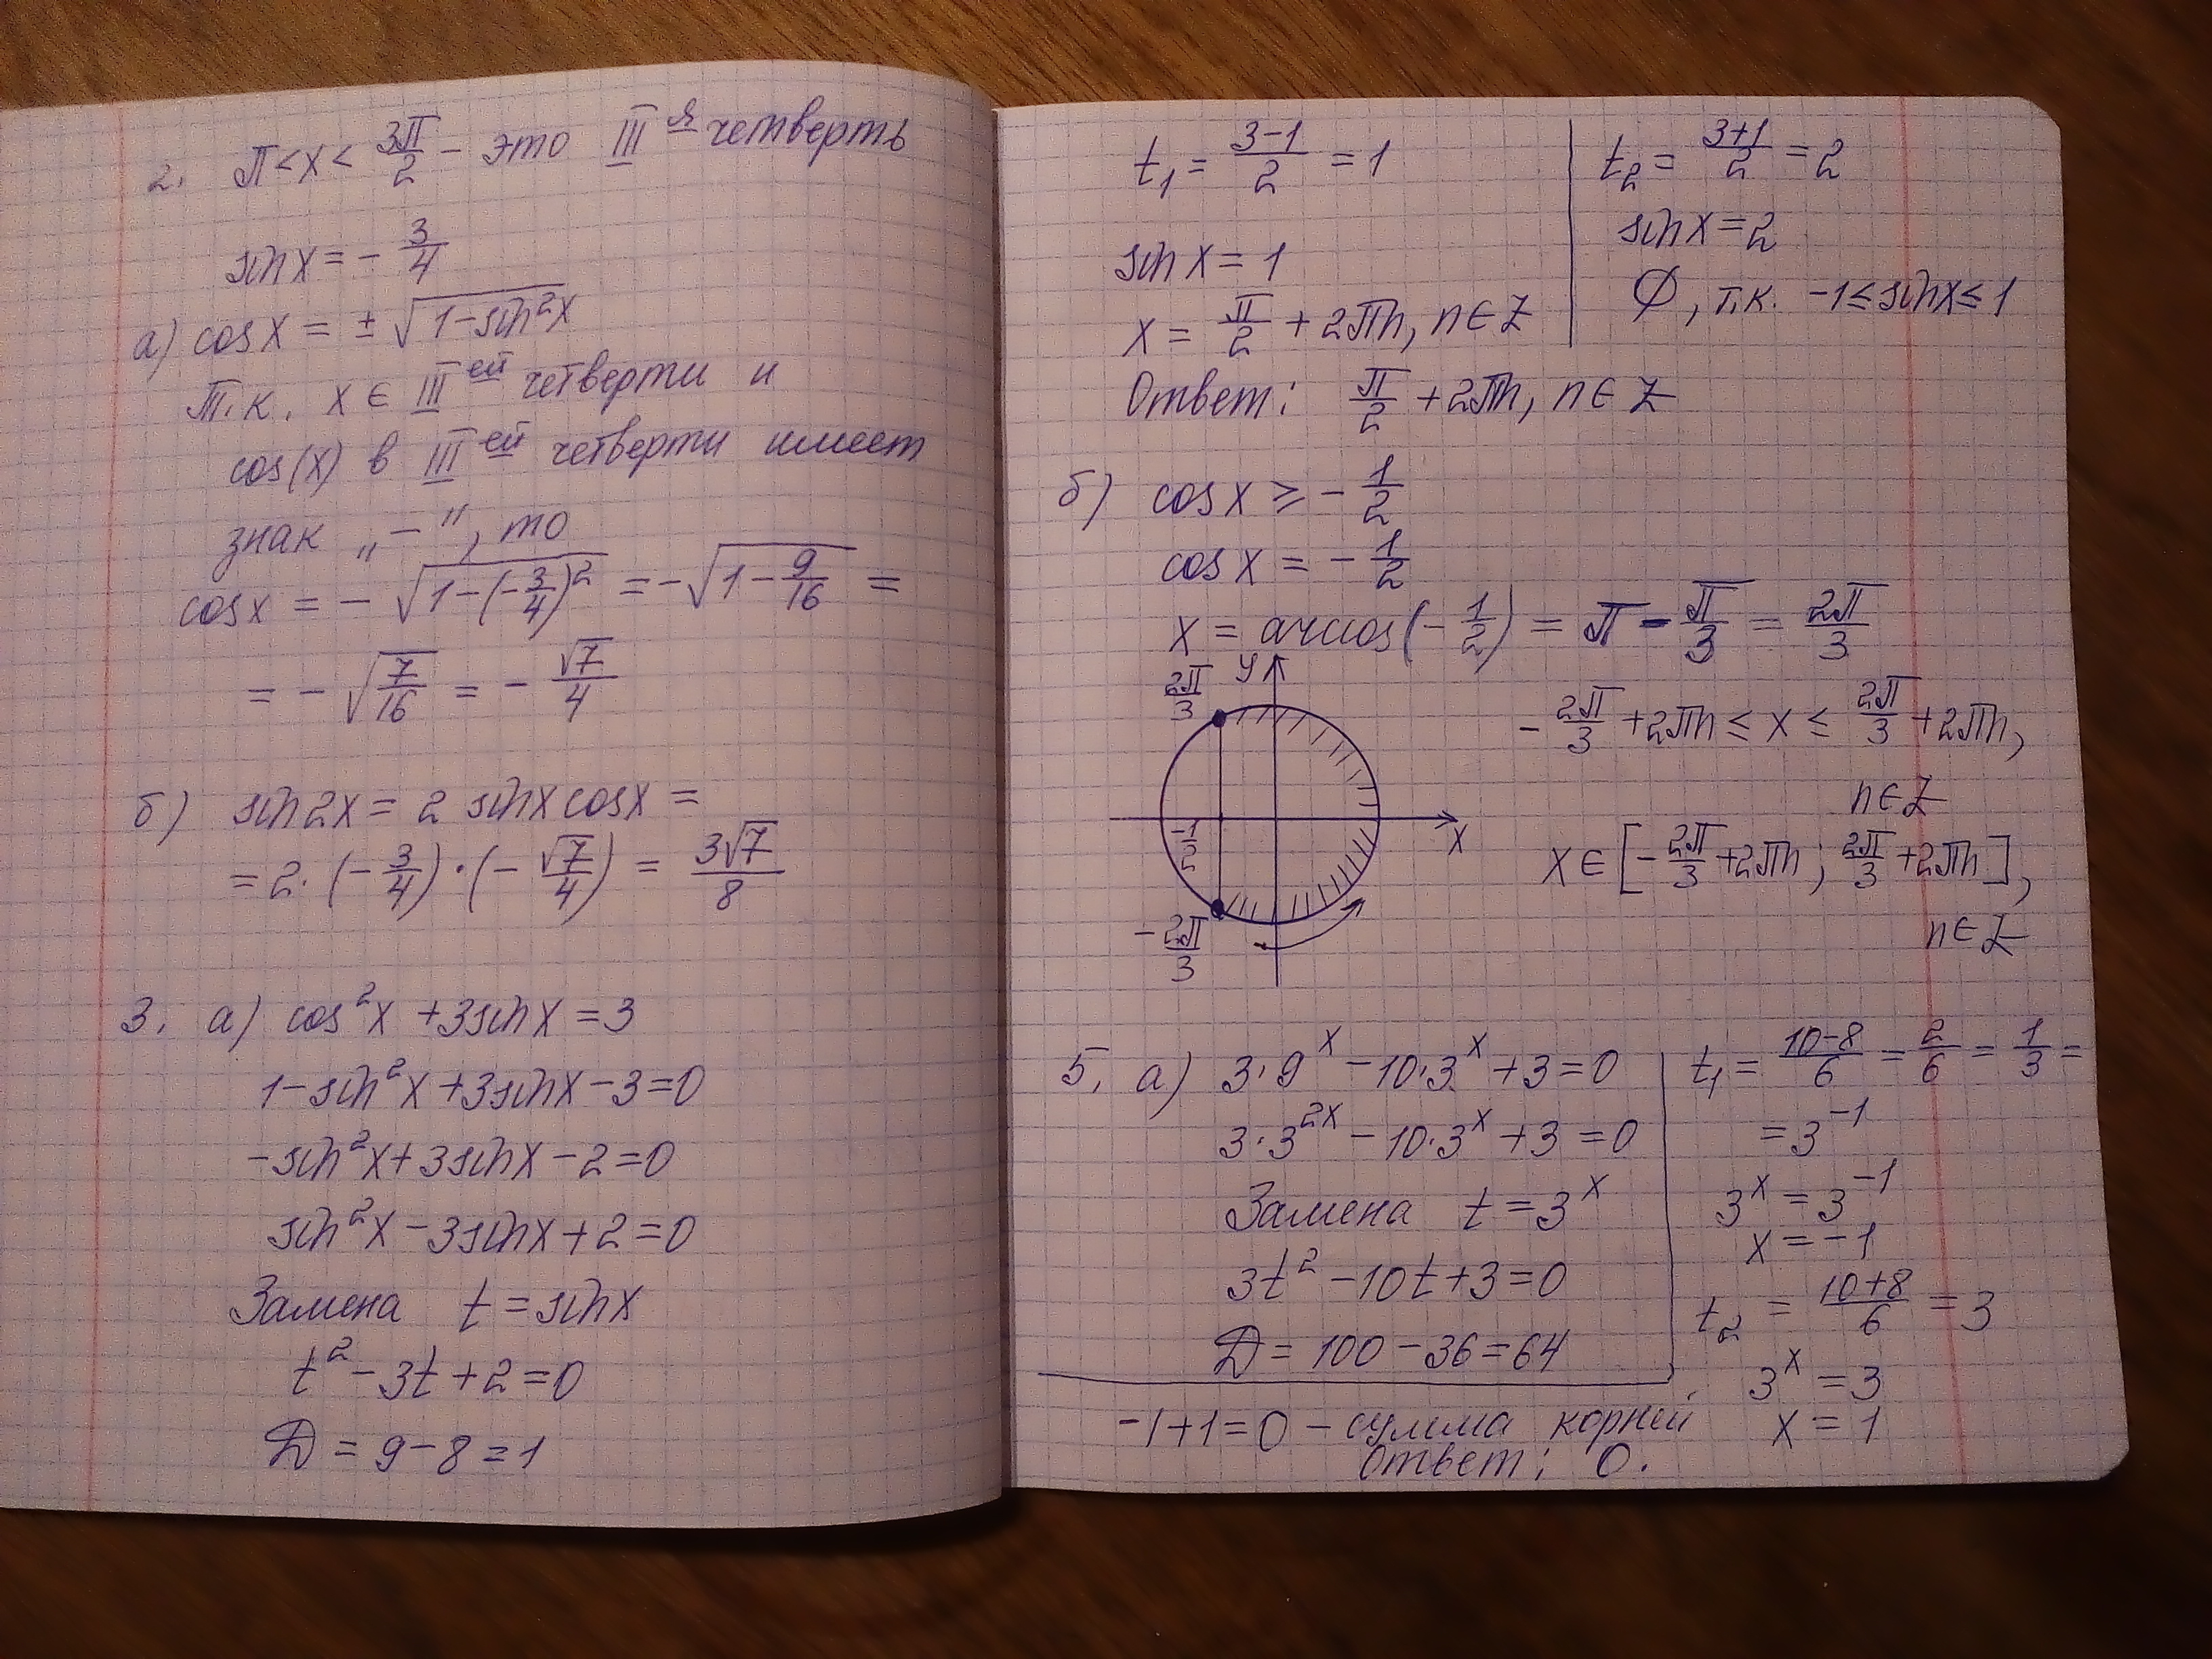 2. π < x < 3π/2 - это III я четверть
sin x = - 3/4
а) cos x = ± √(1-sin²x)
Т.к. x ∈ III ей четверти и
cos(x) в III ей четверти имеет
знак „-", то
cos x = - √(1-(-3/4)²) = -√(1-9/16) =
= - √(7/16) = - √7/4
б) sin 2x = 2 sin x cos x =
= 2·(-3/4)·(-√7/4) = 3√7/8
3. а) cos²x + 3 sin x = 3
1 - sin²x + 3 sin x - 3 = 0
- sin²x + 3 sin x - 2 = 0
sin²x - 3 sin x + 2 = 0
Замена t = sin x
t² - 3t + 2 = 0
D = 9 - 8 = 1
t₁ = (3-1)/2 = 1
sin x = 1
x = π/2 + 2πn, n ∈ Z
t₂ = (3+1)/2 = 2
sin x = 2
∅, т.к. -1 ≤ sin x ≤ 1
Ответ: π/2 + 2πn, n ∈ Z
б) cos x ≥ - 1/2
cos x = - 1/2
x = arccos(-1/2) = π - π/3 = 2π/3
2π/3
y
-1/2
x
-2π/3
- 2π/3 + 2πn ≤ x ≤ 2π/3 + 2πn,
n ∈ Z
x ∈ [-2π/3 + 2πn ; 2π/3 + 2πn],
n ∈ Z
5. а) 3·9^x - 10·3^x + 3 = 0
3·3^2x - 10·3^x + 3 = 0
Замена t = 3^x
3t² - 10t + 3 = 0
D = 100 - 36 = 64
t₁ = (10-8)/6 = 2/6 = 1/3 =
= 3^-1
3^x = 3^-1
x = -1
t₂ = (10+8)/6 = 3
3^x = 3
x = 1
-1+1=0 - сумма корней
Ответ: 0.